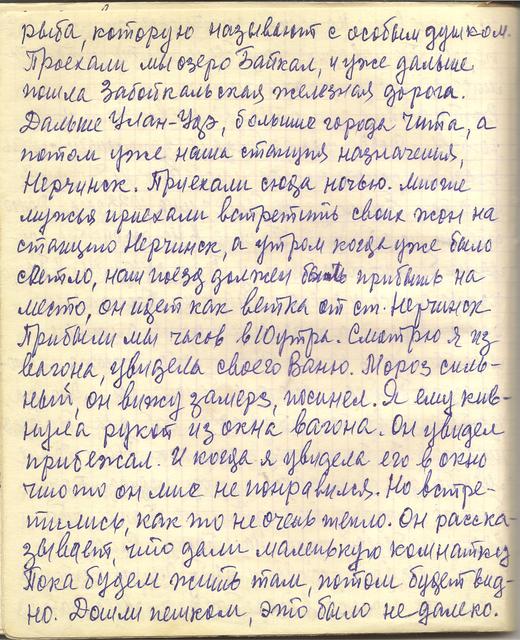 рыба, которую называют с особым душком.
Проехали мы озеро Байкал, и уже дальше
пошла Забойкальская железная дорога.
Дальше Улан-Удэ, больше города Чита, а
потом уже наша станция назначения,
Нерчинск. Приехали сюда ночью. Многие
мужья приехали встретить своих жон на
станцию Нерчинск, а утром когда уже было
светло, наш поезд должен быть прибыть на
место, он идет как ветка от ст. Нерчинск
Прибыли мы часов в 10 утра. Смотрю я из
вагона, увидела своего Ваню. Мороз силь-
ный, он вижу замерз, посинел. Я ему кив-
нула рукой из окна вагона. Он увидел
прибежал. И когда я увидела его в окно
что то он мне не понравился. Но встре-
тились, как то не очень тепло. Он расска-
зывает, что дали маленькую комнатку
Пока будем жить там, потом будет вид-
но. Дошли пешком, это было не далеко.